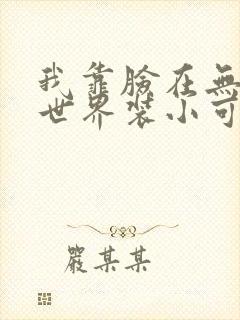 我靠臉在無
世界裝小可
嚴某某